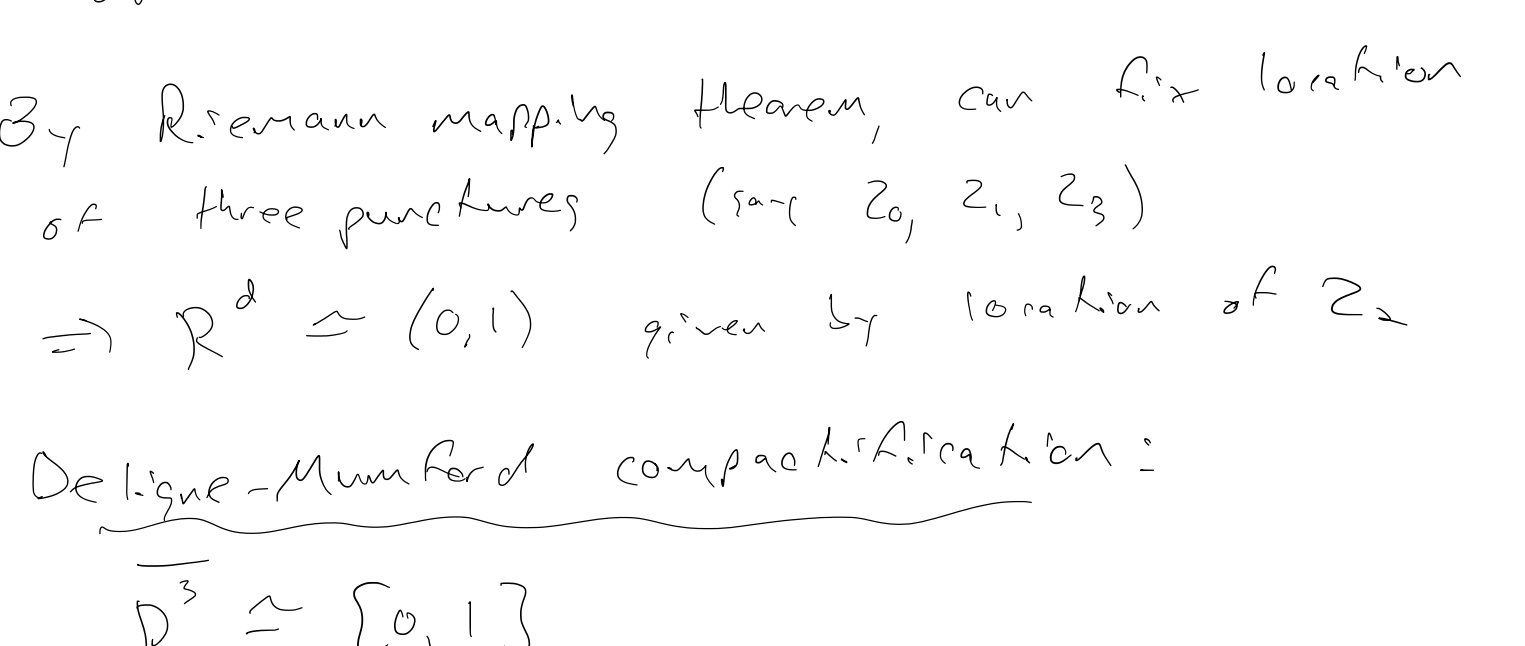 By Riemann mapping theorem, can fix location
of three punctures (say z₀, z₁, z₃)
⇒ R^d ≃ (0,1) given by location of z₂
Deligne-Mumford compactification:
\overline{D^3} ≃ [0,1]